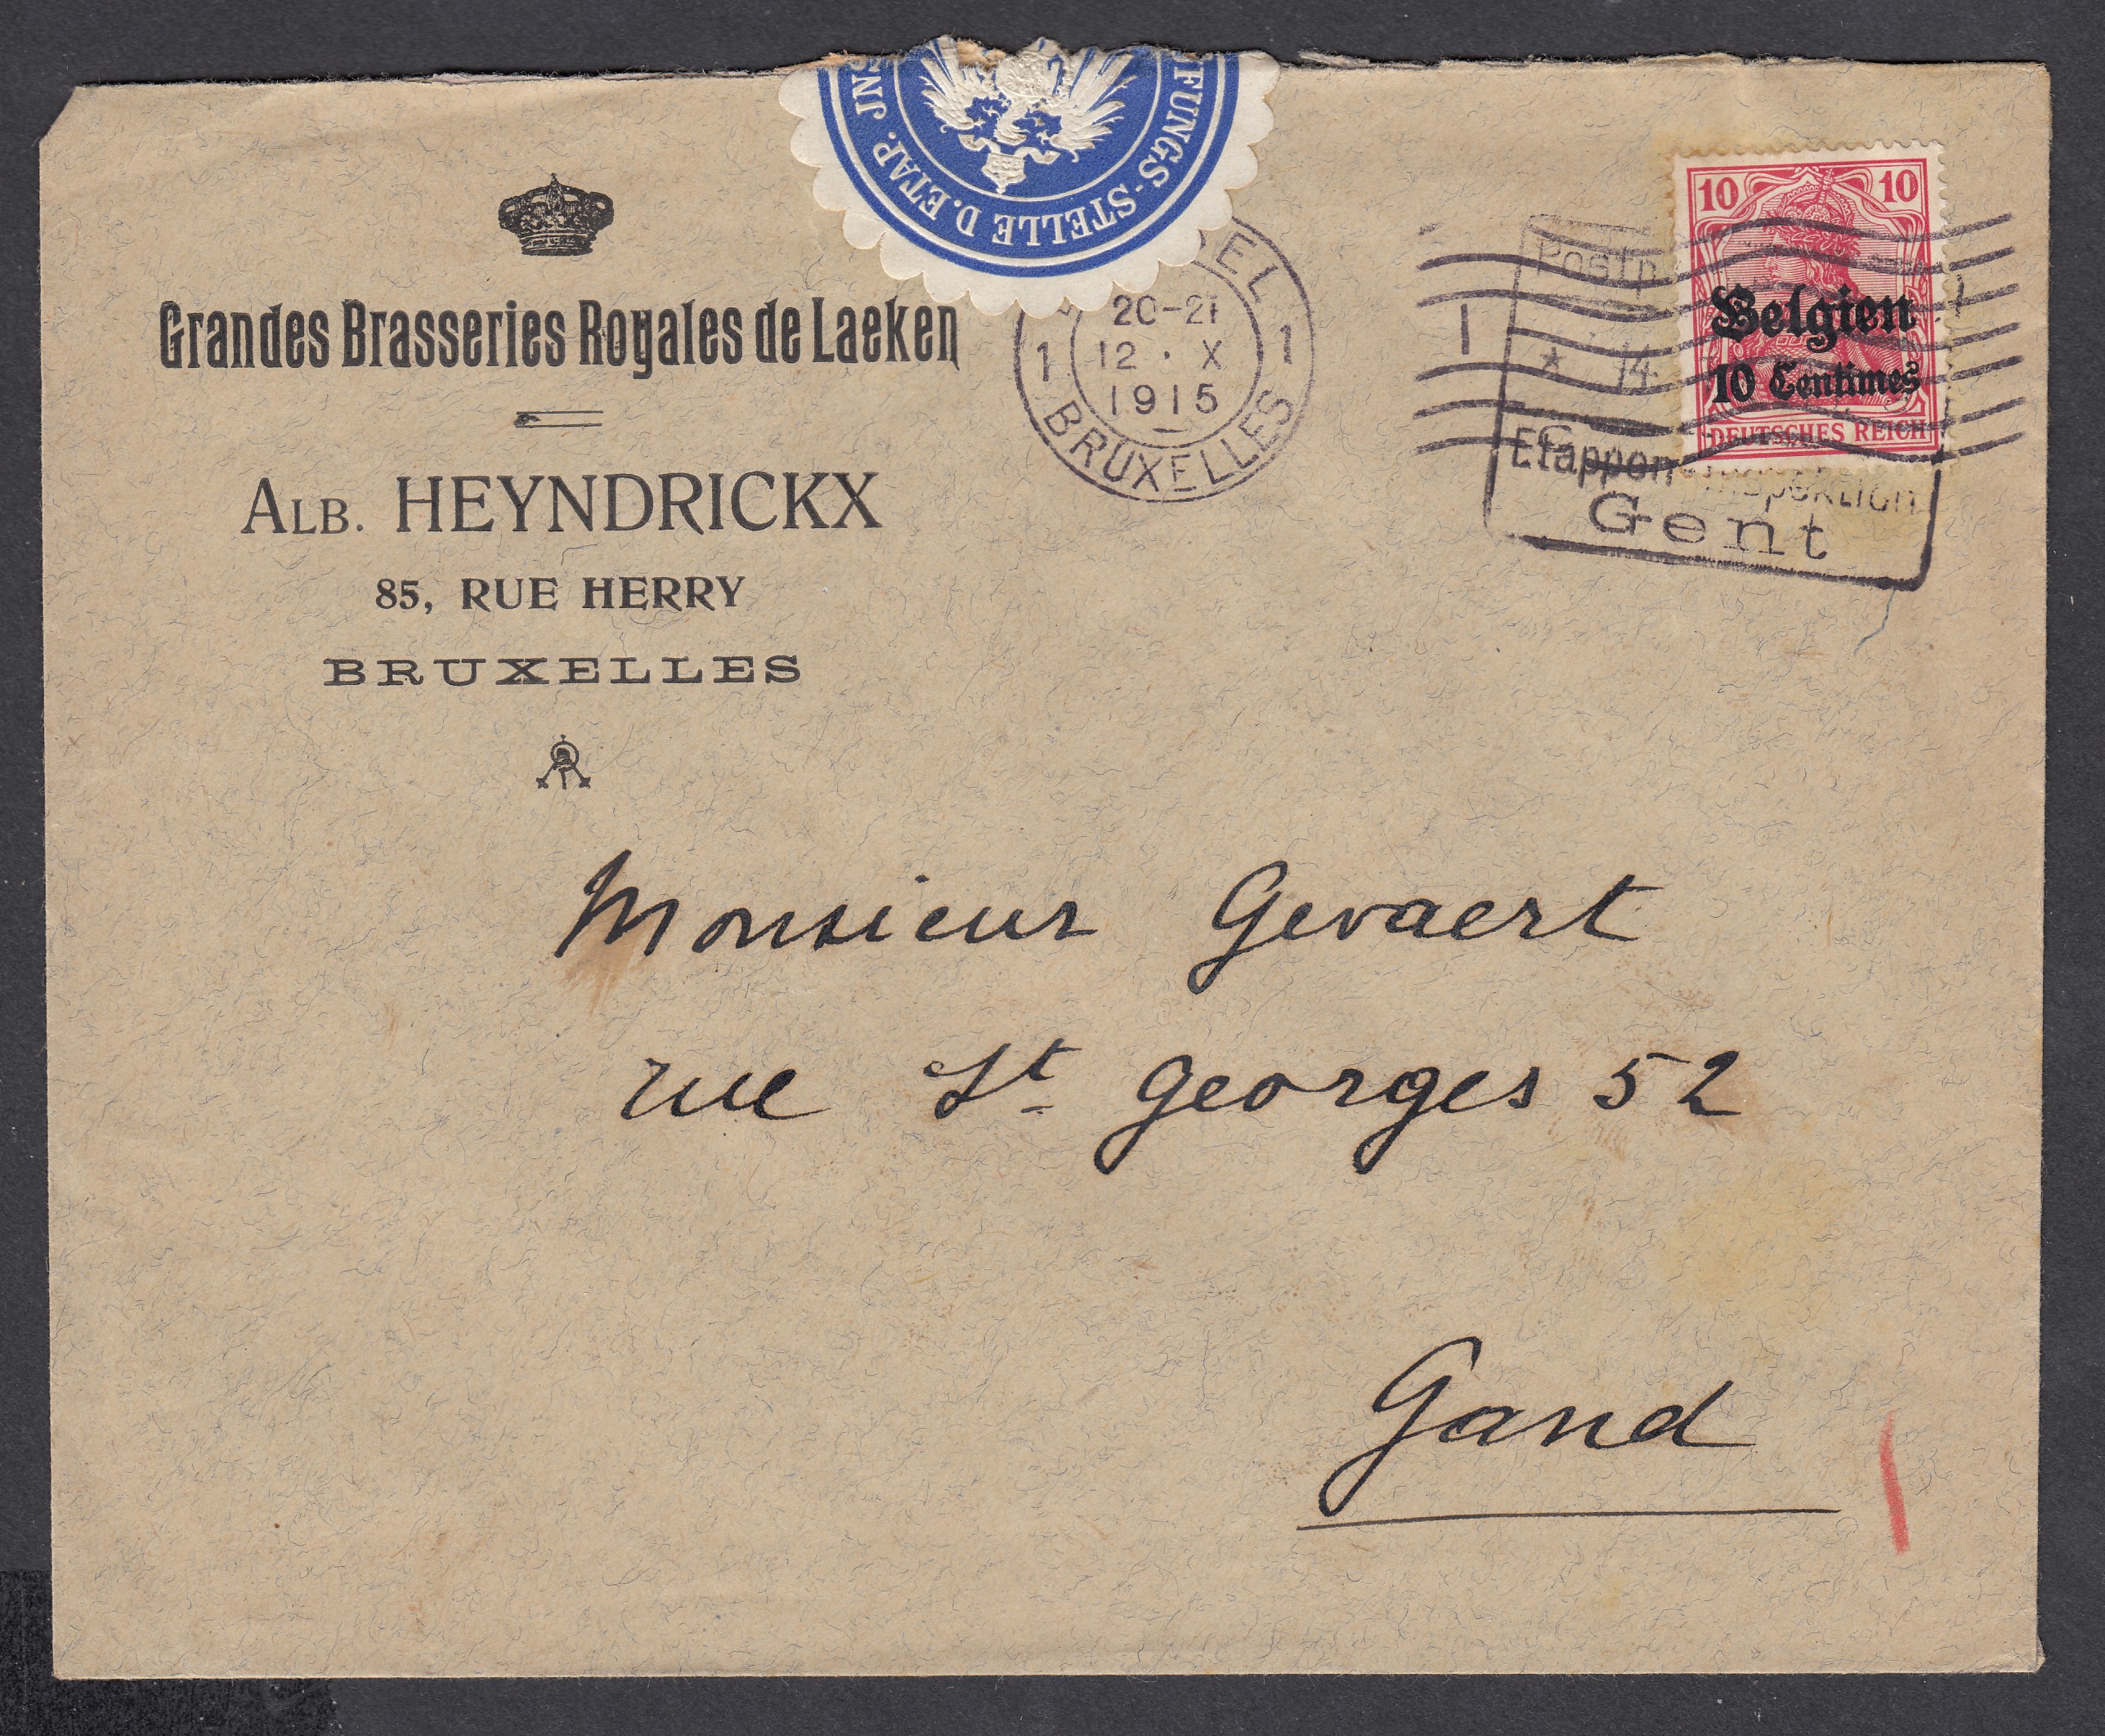 Grandes Brasseries Royales de Laeken
ALB. HEYNDRICKX
85, RUE HERRY
BRUXELLES
FUNGS-STELLE D. ETAP. JNS
EL
20-21
1 12 · X 1
1915
BRUXELLES
1
10 10
Belgien
10 Centimes
DEUTSCHES REICH
Postp
* 14
Gent
Monsieur Gevaert
rue St Georges 52
Gand